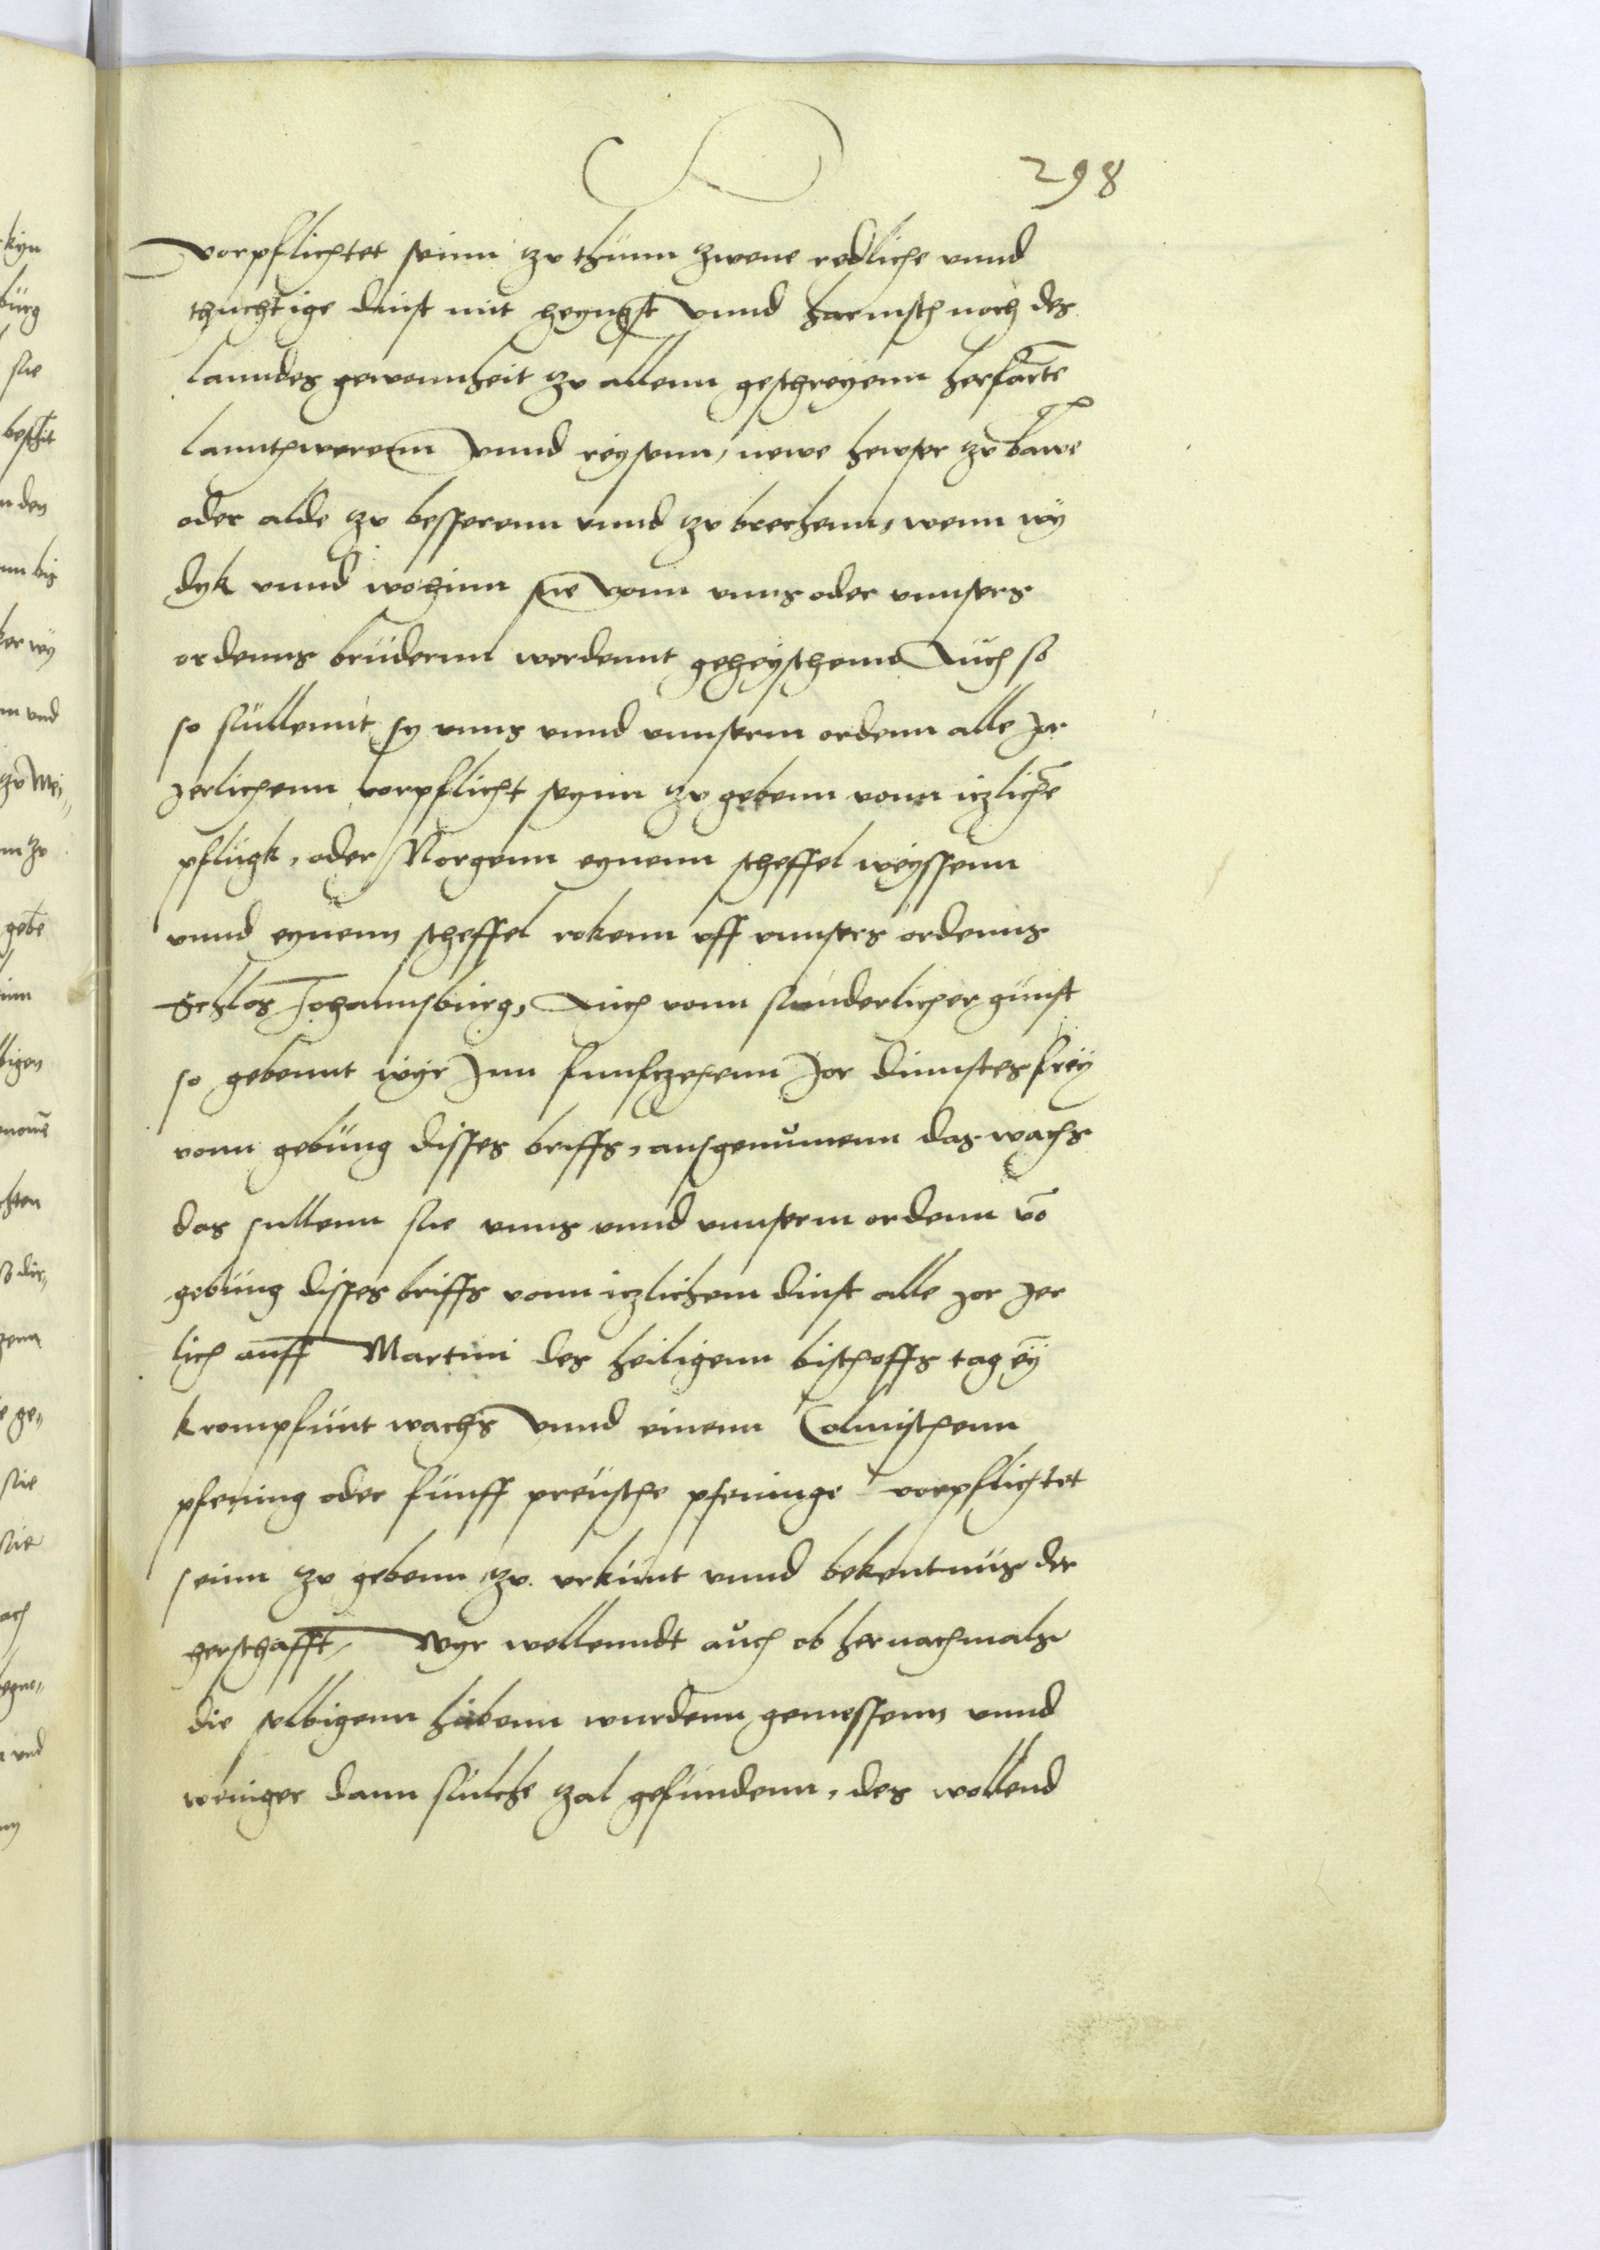 298
vorpflichtet seinn zu thunn zwene redliche unnd
thuchtige dinst mit hengst unnd harnisch noch des
lanndes gewonnheit zu allenn geschreyenn herfarte
lannthwerenn unnd reysenn, newe hewser zu bawe
oder alde zu besserenn unnd zu brechenn, wenn wy
dyk unnd wohinn sie vonn unns oder unnsers
ordenns brüdernn werdennt geheyschenn Auch so
so süllennt sy unns unnd unnserm ordenn alle Jor
jerlichenn vorpflicht seynn zu gebenn vonn iczliche
pflugk, oder Morgenn eynenn scheffel weyssenn
unnd eynenn scheffel rokenn uff unnsers ordenns
Schlos Johannsburg, Auch vonn sunderlicher gunst
so gebennt wyr Inn funfczehenn Jor dinnstes frey
vonn gebung disses briffs, ausgenumenn das wachs
das sullenn sie unns unnd unnserm ordenn vō
gebung disses briffs vonn iczlichem dinst alle jor jer
lich auff Martini des heiligenn bischoffs tag eȳ
krompfunt wachs unnd einenn Colmischenn
pfening oder fünff preusche pfeninge vorpflichtet
seinn zu gebenn zu urkunt unnd bekentnus der
herschafft, Wyr wollenndt auch ob hernachmals
die selbigenn hubenn wurdenn gemessenn unnd
weniger dann sulche zal gefundenn, des wollend